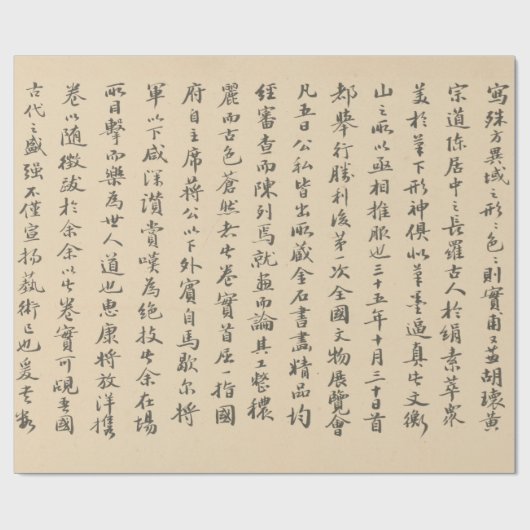 寫殊方異域之形々色々則實甫又蓋胡瓌黃
宗道陳居中之長羅古人於絹素萃眾
美於筆下形神俱似筆墨逼真此文衡
山之所以亟相推服也三十五年十月三十日首
都舉行勝利後第一次全國文物展覽會
凡五日公私皆出所藏金石書畫精品均
經審查而陳列焉就畫而論其工整穠
麗而古色蒼然者此卷實首屈一指國
府自主席蔣公以下外賓自馬歇尔將
軍以下咸深讚賞嘆為絕技此余在場
所目擊而樂為世人道也惠康將放洋攜
卷以隨徵跋於余余以此卷實可覘吾國
古代之盛強不僅宣揚藝術已也爰書數